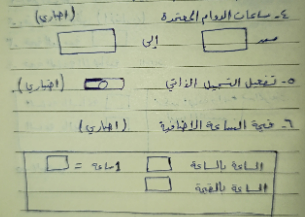 ٤- ساعات الدوام المعتمدة (اجباري)
من إلى
٥- تفعيل التسجيل الذاتي (اختياري)
٦- قيمة الساعة الاضافية (اجباري)
الساعة بالساعة 1 ساعة =
الساعة بالقيمة